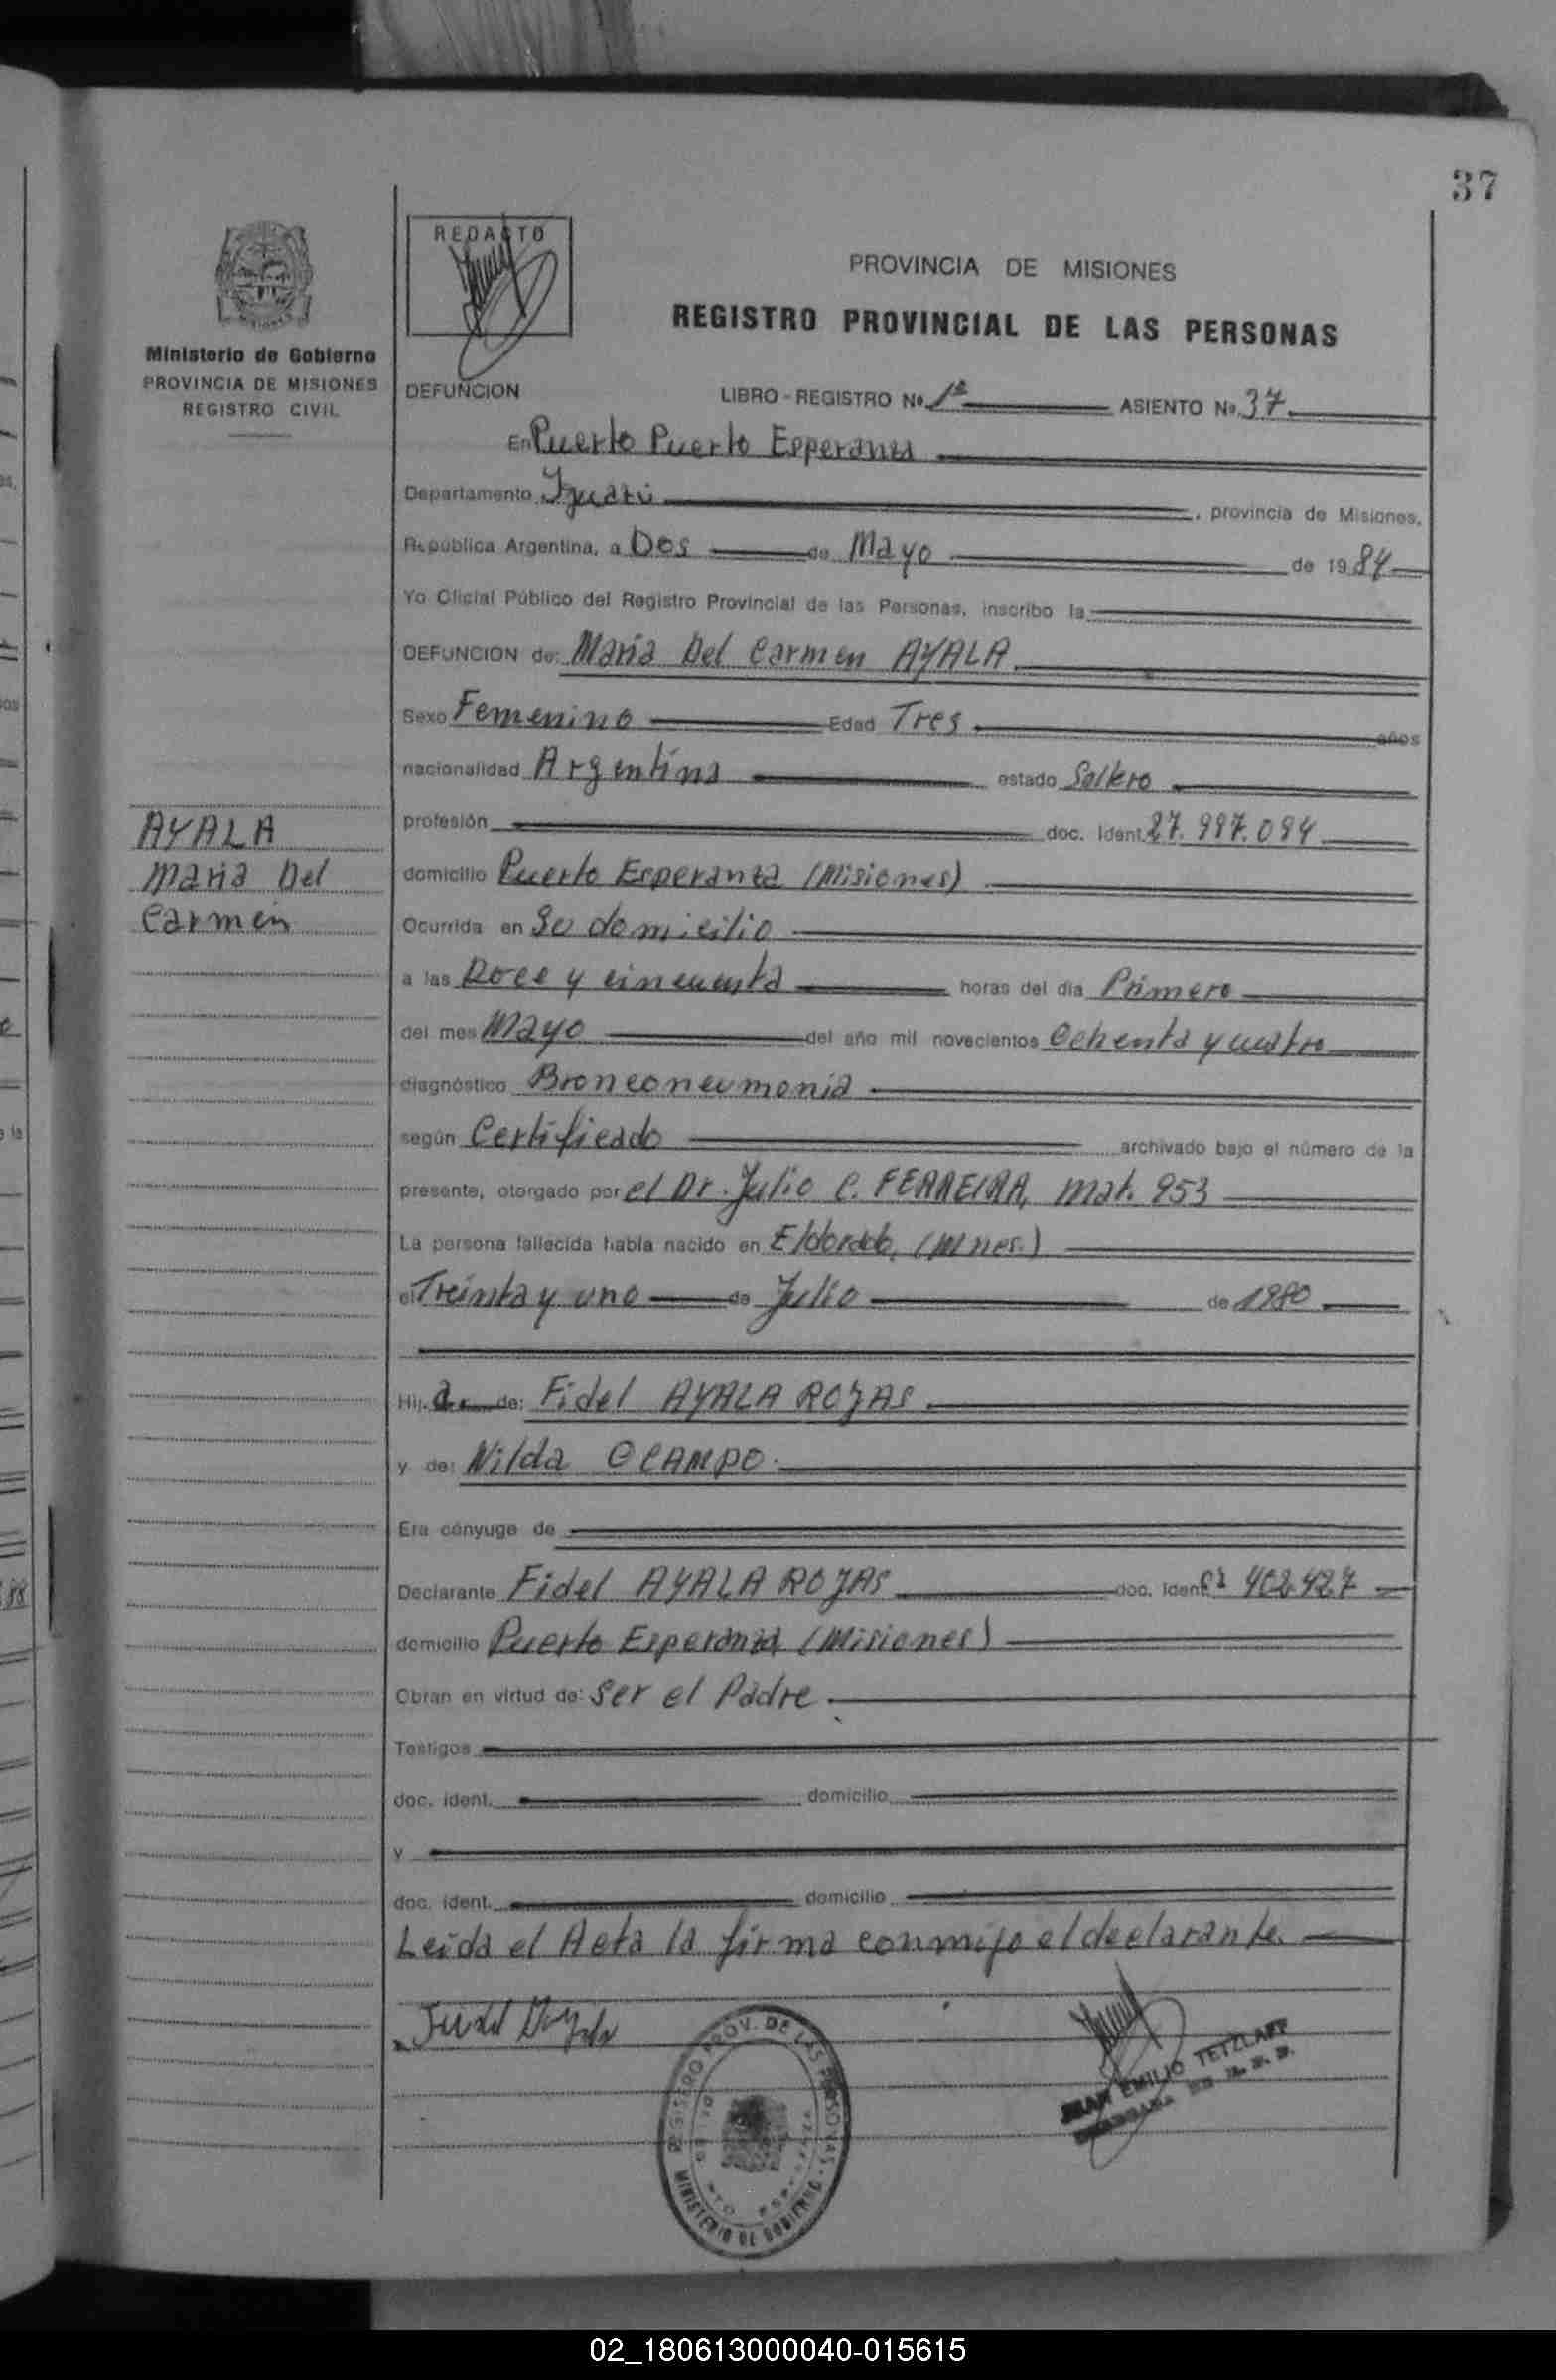 37
REDACTO
PROVINCIA DE MISIONES
REGISTRO PROVINCIAL DE LAS PERSONAS
Ministerio de Gobierno
PROVINCIA DE MISIONES
REGISTRO CIVIL
DEFUNCION LIBRO - REGISTRO Nº 1º ASIENTO Nº 37
En Puerto Puerto Esperanza
Departamento Iguazú, provincia de Misiones,
República Argentina, a Dos de Mayo de 1984
Yo Oficial Público del Registro Provincial de las Personas, inscribo la
DEFUNCION de: María Del Carmen AYALA
Sexo Femenino Edad Tres años
nacionalidad Argentina estado Soltero
AYALA
María Del
Carmen
profesión doc. ident. 27.997.094
domicilio Puerto Esperanza (Misiones)
Ocurrida en Su domicilio
a las Doce y cincuenta horas del día Primero
del mes Mayo del año mil novecientos Ochenta y cuatro
diagnóstico Bronconeumonia
según Certificado archivado bajo el número de la
presente, otorgado por el Dr. Julio C. FERREIRA, Mat. 953
La persona fallecida había nacido en Eldorado, (Mnes.)
el Treinta y uno de Julio de 1980
Hij a de: Fidel AYALA ROJAS
y de: Nilda OCAMPO.
Era cónyuge de
Declarante Fidel AYALA ROJAS doc. ident. 402.427
domicilio Puerto Esperanza (Misiones)
Obran en virtud de: Ser el Padre.
Testigos
doc. ident. domicilio
y
doc. ident. domicilio
Leida el Acta la firma conmigo el declarante.
REGISTRO PROV. DE LAS PERSONAS
MINISTERIO DE GOBIERNO
JUAN EMILIO TETZLAFF
02_180613000040-015615